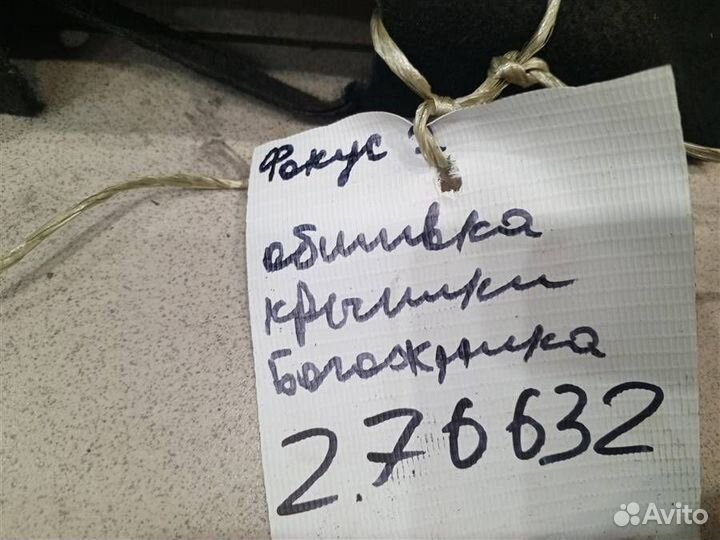 Фокус 2
обшивка
крышки
Богожника
2.76632
Avito